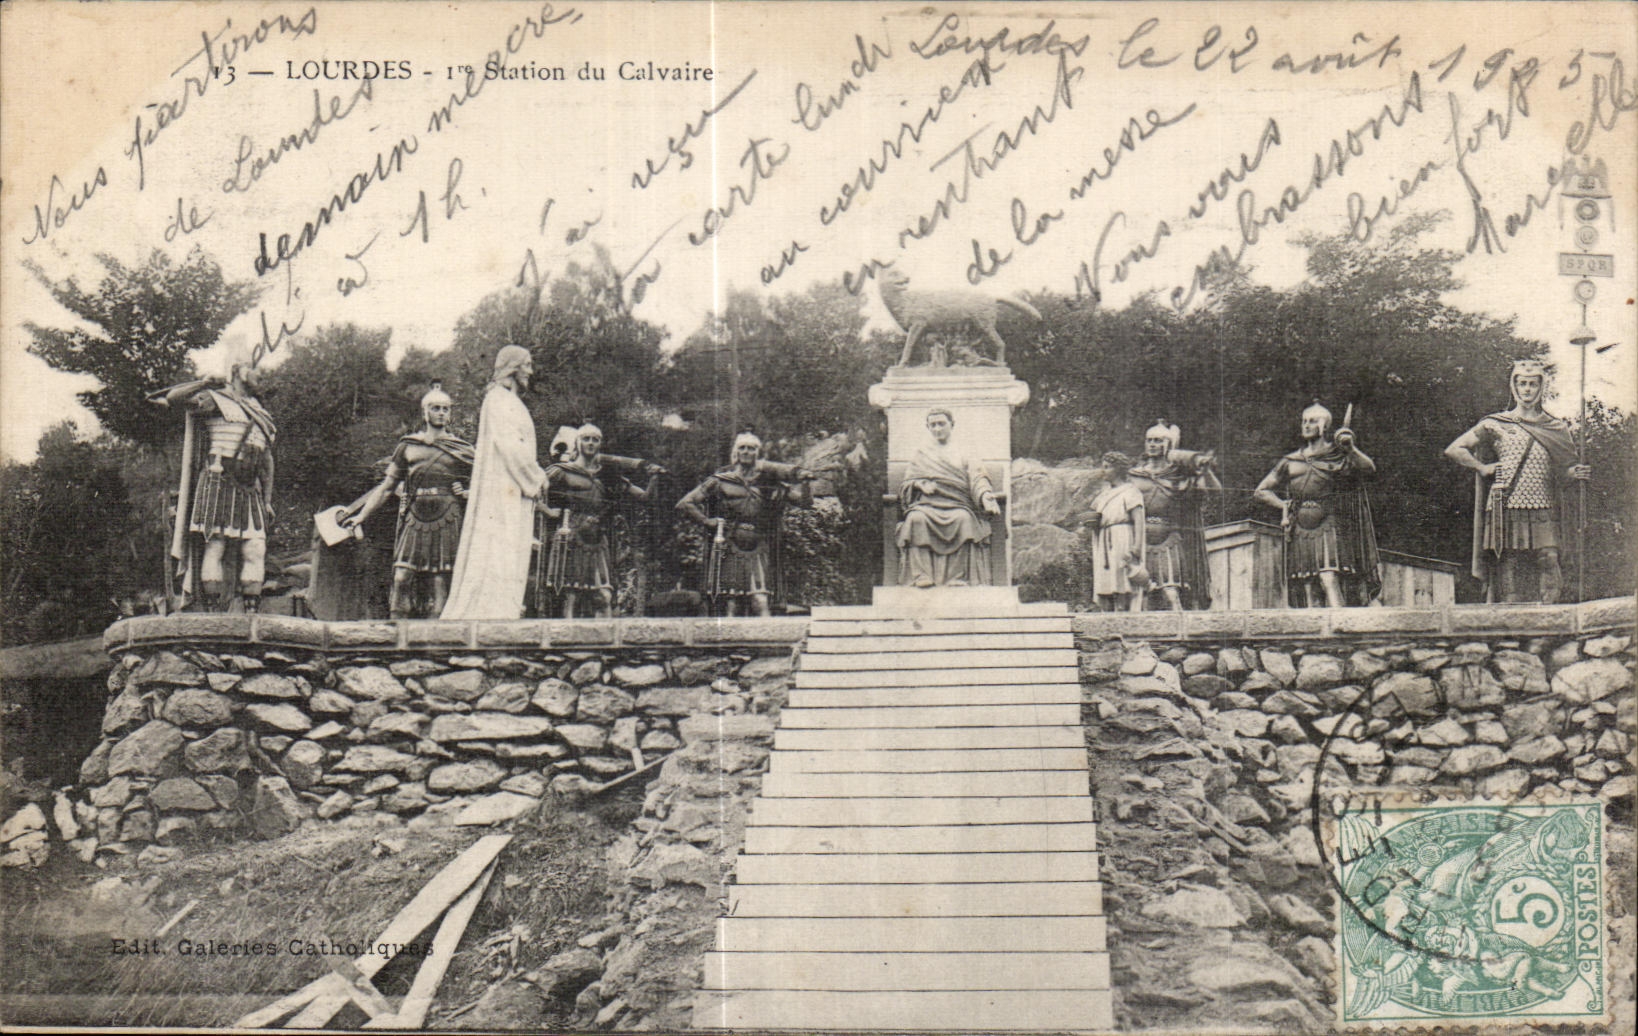 13 — LOURDES - 1re Station du Calvaire
Lourdes le 22 août 1905
Nous partirons
de Lourdes
demain mercre
di à 1h.
J'ai reçu
ta carte lundi
au courrier
en rentrant
de la messe
Nous vous
embrassons
bien fort
Marcelle
SPQR
Edit. Galeries Catholiques
5c
POSTES